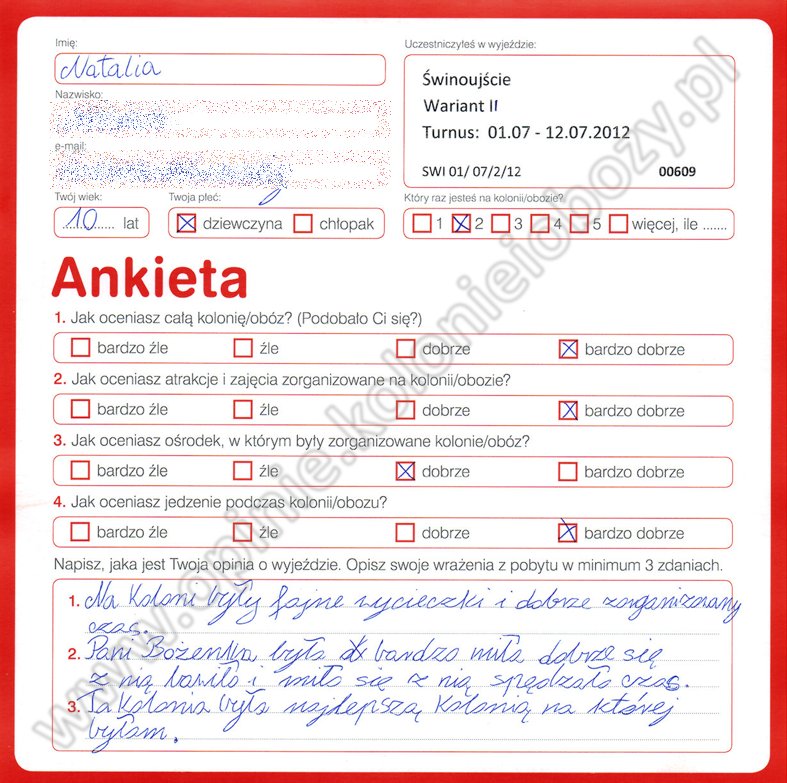 Imię:
Natalia
Nazwisko:
e-mail:
Twój wiek:
10 lat
Twoja płeć:
dziewczyna chłopak
Uczestniczyłeś w wyjeździe:
Świnoujście
Wariant II
Turnus: 01.07 - 12.07.2012
SWI 01/ 07/2/12 00609
Który raz jesteś na kolonii/obozie?
1 2 3 4 5 więcej, ile .......
Ankieta
1. Jak oceniasz całą kolonię/obóz? (Podobało Ci się?)
bardzo źle źle dobrze bardzo dobrze
2. Jak oceniasz atrakcje i zajęcia zorganizowane na kolonii/obozie?
bardzo źle źle dobrze bardzo dobrze
3. Jak oceniasz ośrodek, w którym były zorganizowane kolonie/obóz?
bardzo źle źle dobrze bardzo dobrze
4. Jak oceniasz jedzenie podczas kolonii/obozu?
bardzo źle źle dobrze bardzo dobrze
Napisz, jaka jest Twoja opinia o wyjeździe. Opisz swoje wrażenia z pobytu w minimum 3 zdaniach.
1. Na Koloni były fajne wycieczki i dobrze zorganizowany
czas.
2. Pani Bożenka była bardzo miła dobrze się
z nią bawiło i miło się z nią spędzało czas.
3. Ta Kolonia była najlepszą Kolonią na której
byłam.
www.opinie.kolonieiobozy.pl